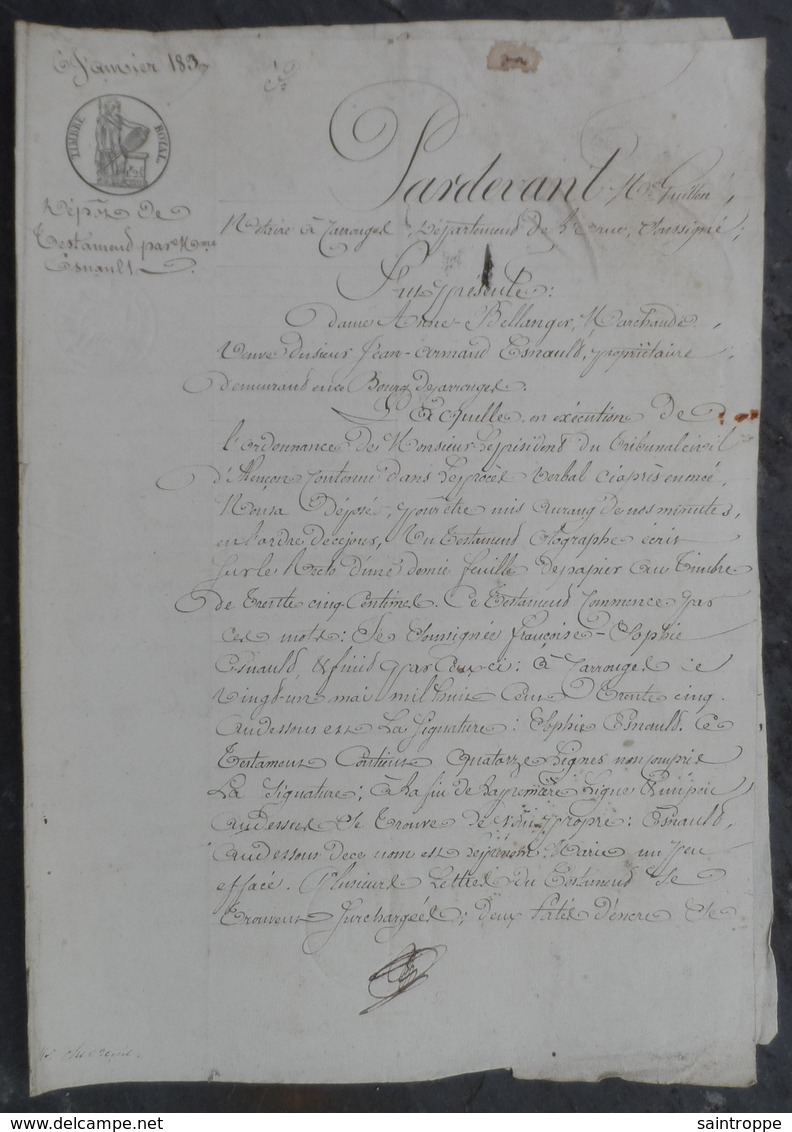 6 Janvier 183
TIMBRE ROYAL
Dépôt de
Testament par Mme
Esnault
Pardevant Me Guillou
Notaire à Carrouges Département de l'Orne, soussigné;
Fut présente:
dame Anne Bellanger, Marchande
Veuve du sieur Jean-Armand Esnault, propriétaire
demeurant en ce Bourg de Carrouges.
Laquelle, en exécution de
l'ordonnance de Monsieur le président du Tribunal civil
d'Alençon contenue dans le procès verbal ci après énoncé,
Nous a déposé, pour être mis au rang de nos minutes,
en l'ordre de ce jour, un Testament olographe écrit
sur le Recto d'une demie feuille de papier au Timbre
de Trente cinq Centimes. Ce Testament commence par
ces mots: Je Soussignée françoise-Sophie
Esnault, & finit par ceux-ci: à Carrouges le
Vingt-un mai mil huit cent trente cinq.
au dessous est La signature: Sophie Esnault. Ce
Testament Contient quatorze lignes non compris
La Signature; à la fin de la première ligne &
au dessus se trouve le nom propre: Esnault,
au dessous de ce nom est le prénom: Marie un peu
effacé. Plusieurs Lettres du Testament se
trouvent surchargées; deux patés d'encre se